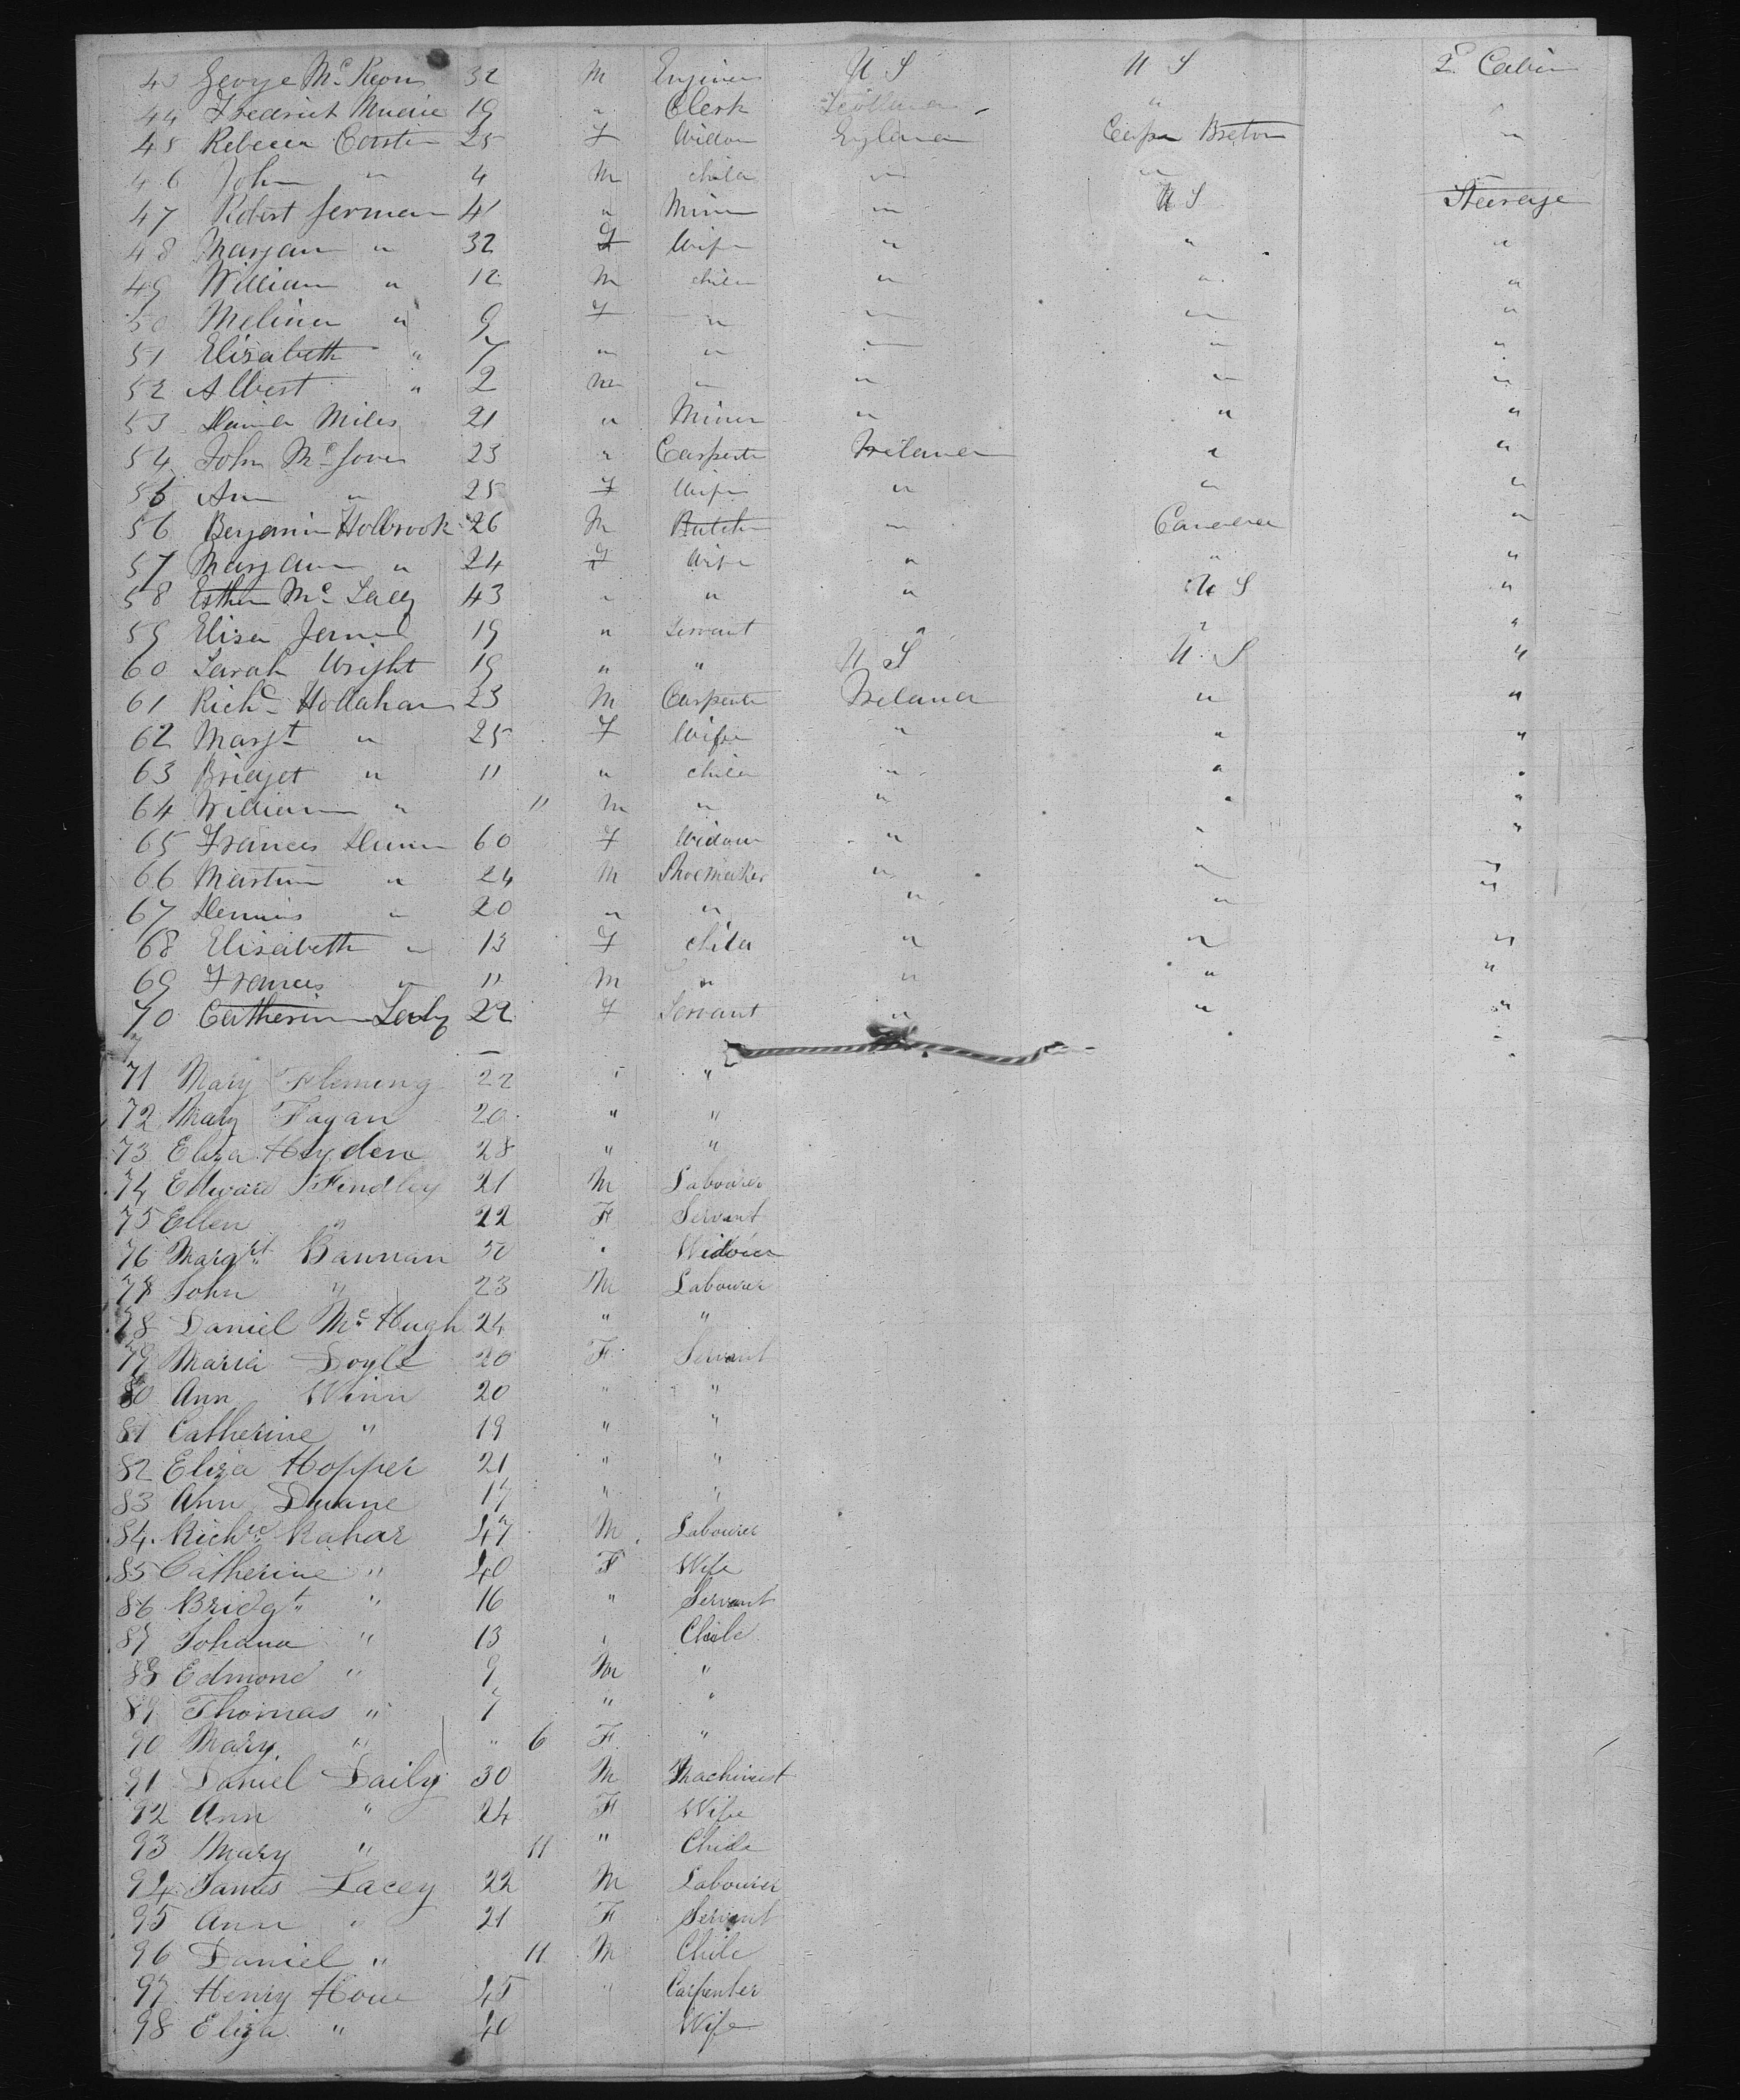 43 George McKeon 32 M Engineer U S U S 2d Cabin
44 Fredrick Mudie 19 " Clerk Scotland " "
45 Rebecca 25 F Widow England Cape Breton "
46 John " 4 M child " " "
47 Robert Jerman 41 " Miner " U S Steerage
48 Maryann " 32 F Wife " " "
49 William " 12 M child " " "
50 Melina " 9 F " " " "
51 Elisabeth " 7 " " " " "
52 Albert " 2 M " " " "
53 Miles 21 " Miner " " "
54 John Mc 23 " Carpenter Ireland " "
55 Ann " 25 F Wife " " "
56 Benjamin Holbrook 26 M Butcher " Canada "
57 Mary Ann " 24 F Wife " " "
58 Esther Mc Lally 43 " " " U S "
59 Elisa 19 " Servant " " "
60 Sarah Wright 19 " " U S U S "
61 Richd Hollahan 23 M Carpenter Ireland " "
62 Margt " 25 F Wife " " "
63 Bridget " 11 " child " " "
64 William " 11 M " " " "
65 Frances Dunn 60 F Widow " " "
66 Martin " 24 M Shoemaker " " "
67 Dennis " 20 " " " " "
68 Elisabeth " 13 F child " " "
69 Frances " 11 M " " " "
70 Catherine 22 F Servant " " "
71 Mary Fleming 22 " "
72 Mary Fagan 20 " "
73 Eliza Hayden 28 " "
74 Edward Findley 21 M Labourer
75 Ellen " 22 F Servant
76 Margrt Bannan 50 " Widow
77 John " 23 M Labourer
78 Daniel Mc Hugh 24 " "
79 Maria Doyle 20 F Servant
80 Ann Winn 20 " "
81 Catherine " 19 " "
82 Eliza Hopper 21 " "
83 Ann Duane 17 " "
84 Richd Kahar 47 M Labourer
85 Catherine " 40 F Wife
86 Bridgt " 16 " Servant
87 Johana " 13 " Child
88 Edmond " 9 M "
89 Thomas " 7 " "
90 Mary " " 6 F "
91 Daniel Daily 30 M Machinist
92 Ann " 24 F Wife
93 Mary " 11 " Child
94 James Lacey 22 M Labourer
95 Ann " 21 F Servant
96 Daniel " 11 M Child
97 Henry Howe 45 " Carpenter
98 Eliza " 40 Wife